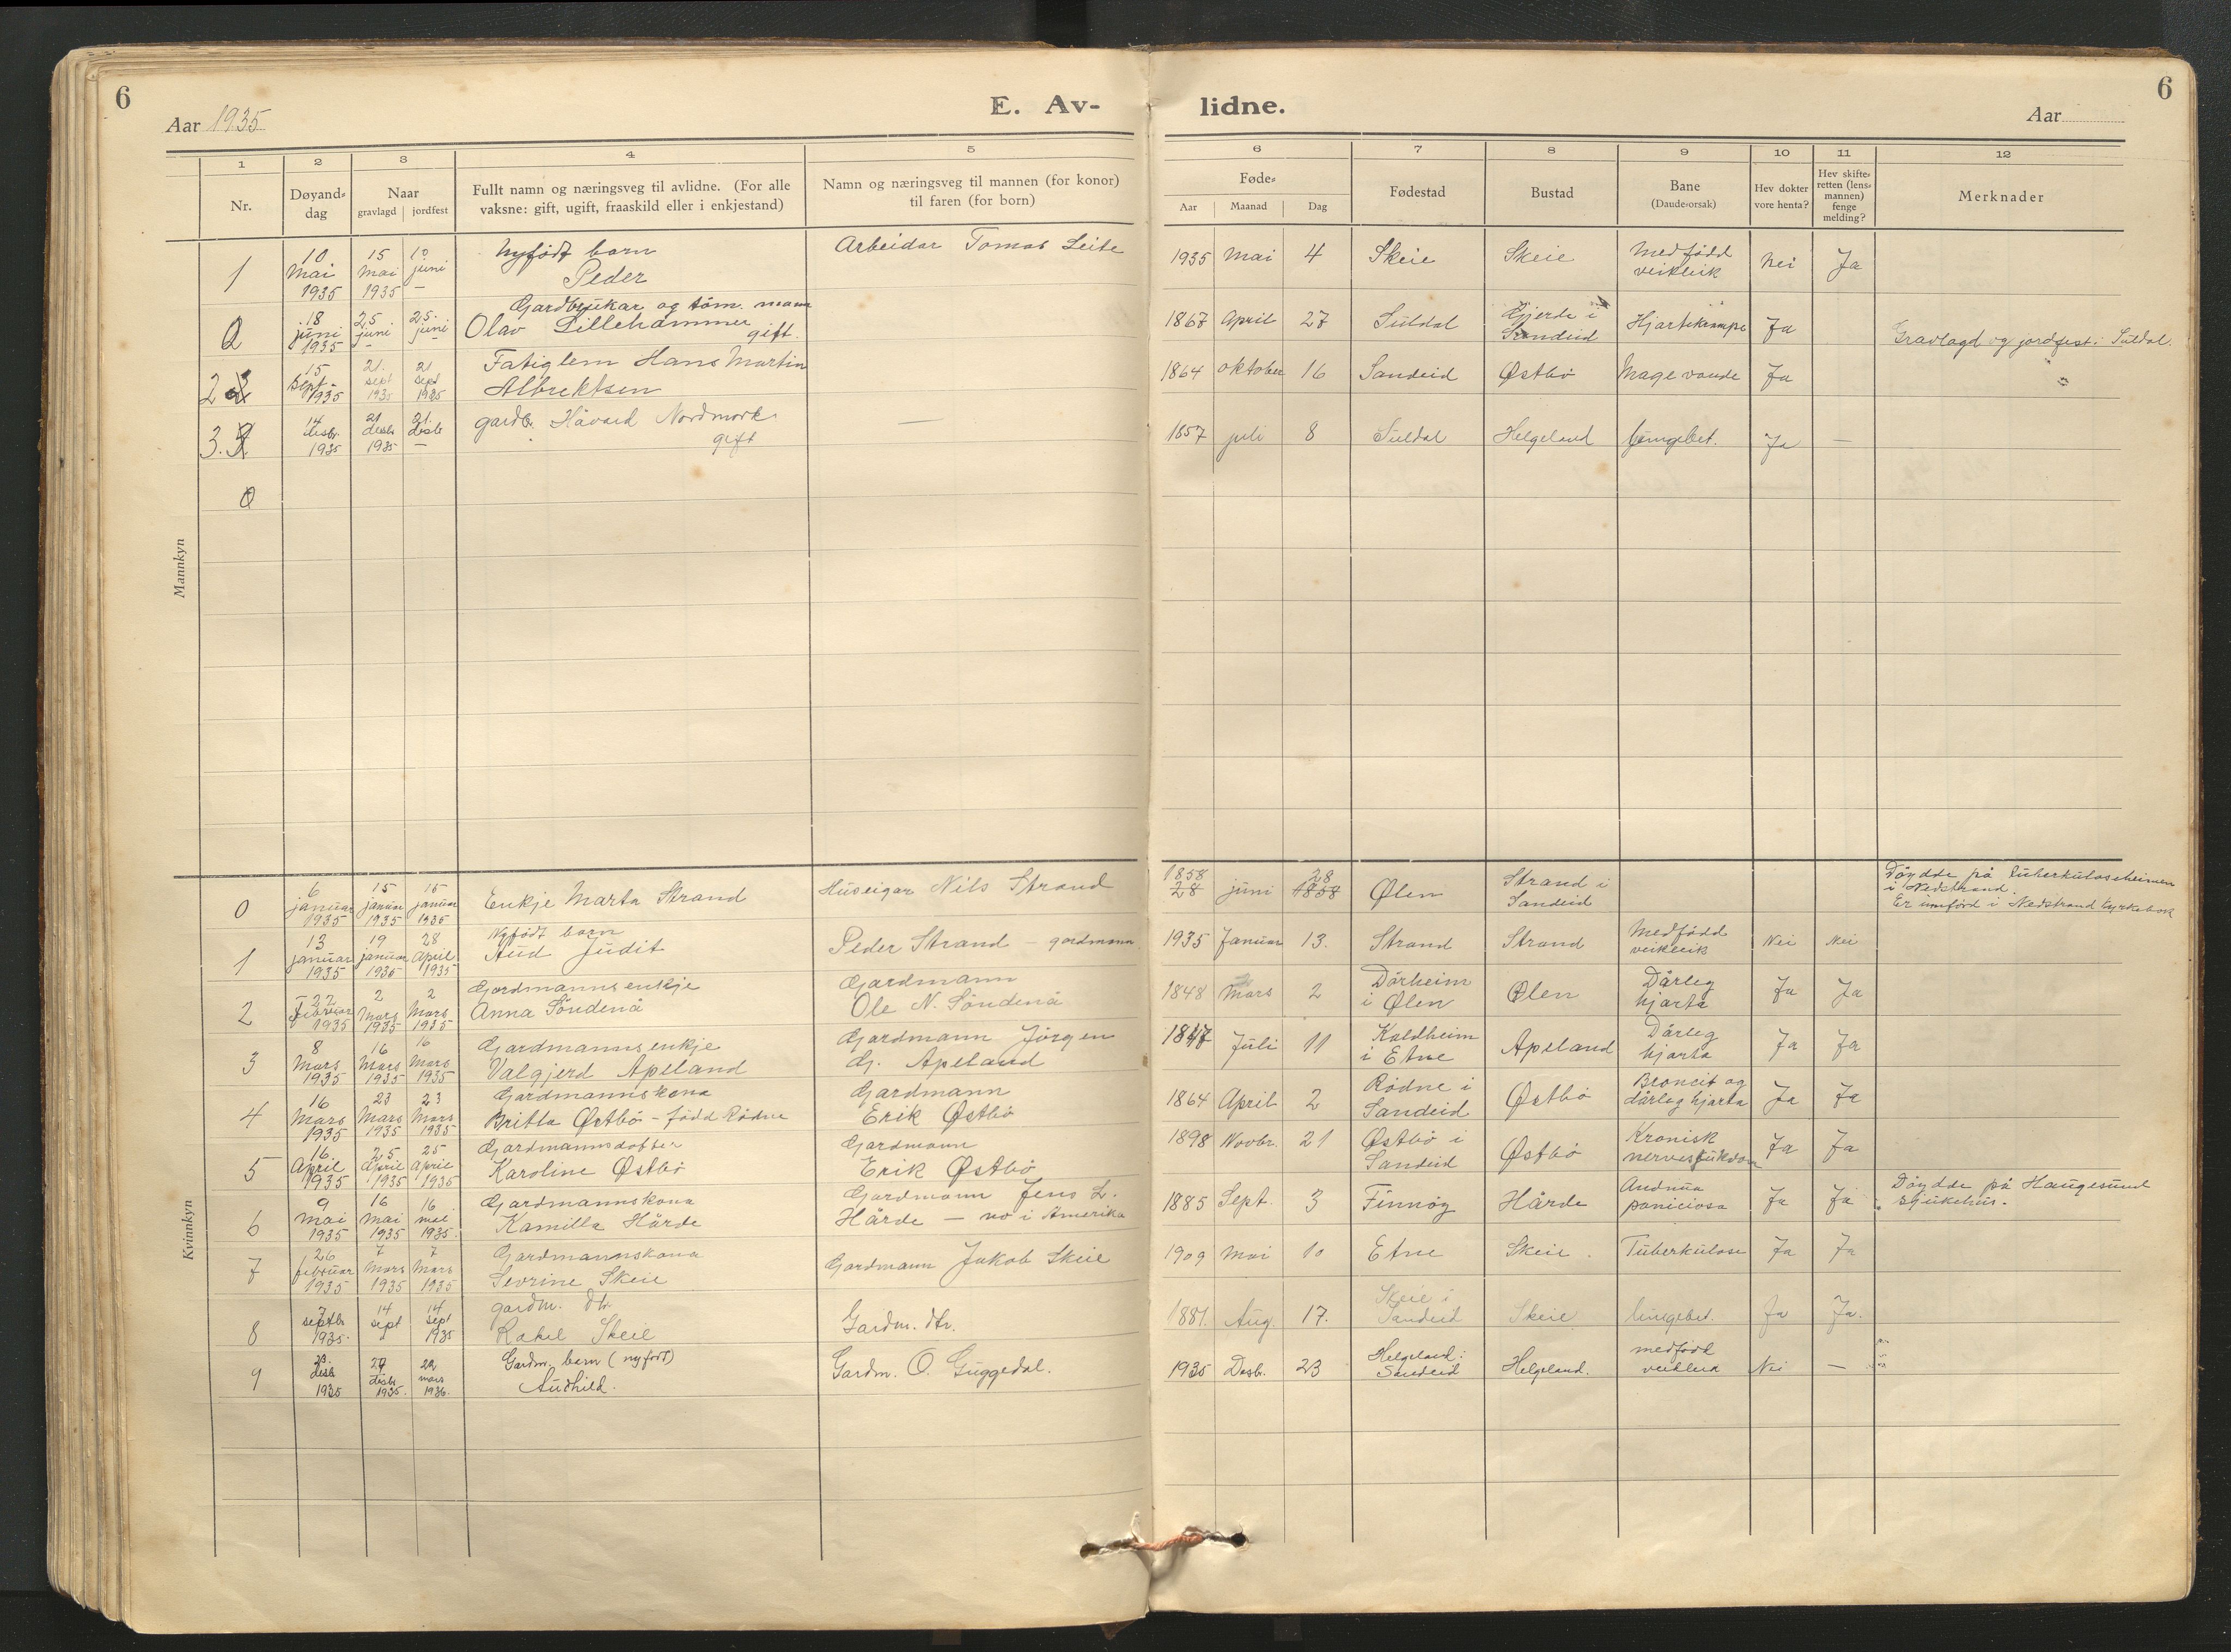 6
Aar 1935
E. Av-
lidne.
Aar
6
1 2 3 4 5
6 7 8 9 10 11 12
Nr.
Døyand-
dag
Naar
gravlagd | jordfest
Fullt namn og næringsveg til avlidne. (For alle
vaksne: gift, ugift, fraaskild eller i enkjestand)
Namn og næringsveg til mannen (for konor)
til faren (for born)
Føde-
Aar Maanad Dag
Fødestad
Bustad
Bane
(Daude-orsak)
Hev dokter
vore henta?
Hev skifte-
retten (lens-
mannen)
fenge
melding?
Merknader
Mannkyn
1
10
Mai
1935
15
Mai
1935
10
juni
—
Nyfödt barn
Peder
Arbeidar Tomas Leite
1935 Mai 4 Skeie Skeie
Medfödd
veikleik
Nei Ja
0
18
juni
1935
25
juni
-
25.
juni
-
Gardbrukar og töm. mann
Olav Lillehammer
gift.
1867 April 27 Suldal
Gjerde i
Sandeid
Hjartekrampe Ja
Gravlagd og jordfest i Suldal.
2
15
Sept -
1935
21.
sept
1935
21
sept
1935
Fatiglem Hans Martin
Albrektsen
1864 oktober 16 Sandeid Østbö Mage vonde Ja
3.
14
desbr.
1935
21
desbr
1935
21.
desbr
—
gardbr. Håvard Nordmork
gift
—
1857 juli 8 Suldal Helgeland lungebet. Ja —
0
Kvinnkyn
0
6
januar
1935
15
januar
1935
15
januar
1935
Enkje Marta Strand
Huseigar Nils Strand
1858
28
juni
28
1858
Ølen
Strand i
Sandeid
Döydde på Tuberkuloseheimen
i Nedstrand.
Er innförd i Nedstrand kyrkebok
1
13
januar
1935
19
januar
1935
28
April
1935
Nyfödt barn
Aud Judit
Peder Strand - gardmann
1935 Januar 13. Strand Strand
Medfödd
veikleik
Nei Nei
2
22
Februar
1935
2
Mars
1935
2
Mars
1935
Gardmannsenkje
Anna Söndenå
Gardmann
Ole N. Söndenå
1848 Mars 2
Dörheim
i Ølen
Ølen
Dårleg
hjarta
Ja Ja
3
8
Mars
1935
16
Mars
1935
16
Mars
1935
Gardmannsenkje
Valgjerd Apeland
Gardmann Jörgen
G. Apeland
1847 Juli 11
Kaldheim
i Etne
Apeland
Dårleg
hjarta
Ja Ja
4
16
Mars
1935
23
Mars
1935
23
Mars
1935
Gardmannskona
Britta Østbö - född Rödne
Gardmann
Erik Østbö
1864 April 2
Rödne i
Sandeid
Østbö
Broncit og
dårleg hjarta
Ja Ja
5
16.
April
1935
25
April
1935
25
April
1935
Gardmannsdotter
Karoline Østbö
Gardmann
Erik Østbö
1898 Novbr. 21
Østbö i
Sandeid
Østbö
Kronisk
nervesjukdom
Ja Ja
6
9
Mai
1935
16
Mai
1935
16
mai
1935.
Gardmannskona
Kamilla Hårde
Gardmann Jens L.
Hårde — no i Amerika
1885 Sept. 3 Finnöy Hårde
Andmia
paniciosa
Ja Ja
Döydde på Haugesund
sjukehus.
7
26
februar
1935
7
Mars
1935
7
Mars
1935
Gardmannskona
Sevrine Skeie
Gardmann Jakob Skeie
1909 Mai 10 Etne Skeie. Tuberkulose Ja Ja
8
7
septbr
1935.
14
sept
14
sept
1935
gardm. dtr.
Rakel Skeie
Gardm. dtr.
1881. Aug. 17.
Skeie i
Sandeid
Skeie lungebet. Ja Ja.
9
23.
desbr
1935
29
desbr
1935.
22
mars
1936.
Gardm. barn (nyfödt)
Audhild.
Gardm. O. Guggedal.
1935 Desbr. 23
Helgeland i
Sandeid
Helgeland.
medfödt
veikleik
Nei —